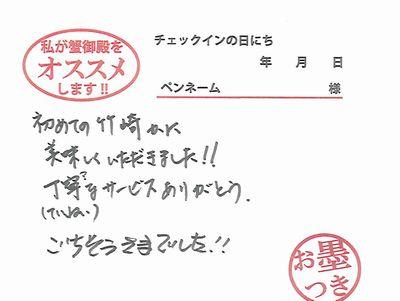 私が蟹御殿を
オススメ
します!!
チェックインの日にち
年 月 日
ペンネーム 様
初めての竹崎かに
美味しくいただきました!!
丁寧?なサービスありがとう。
(ていねい)
ごちそうさまでした!!
お墨
つき